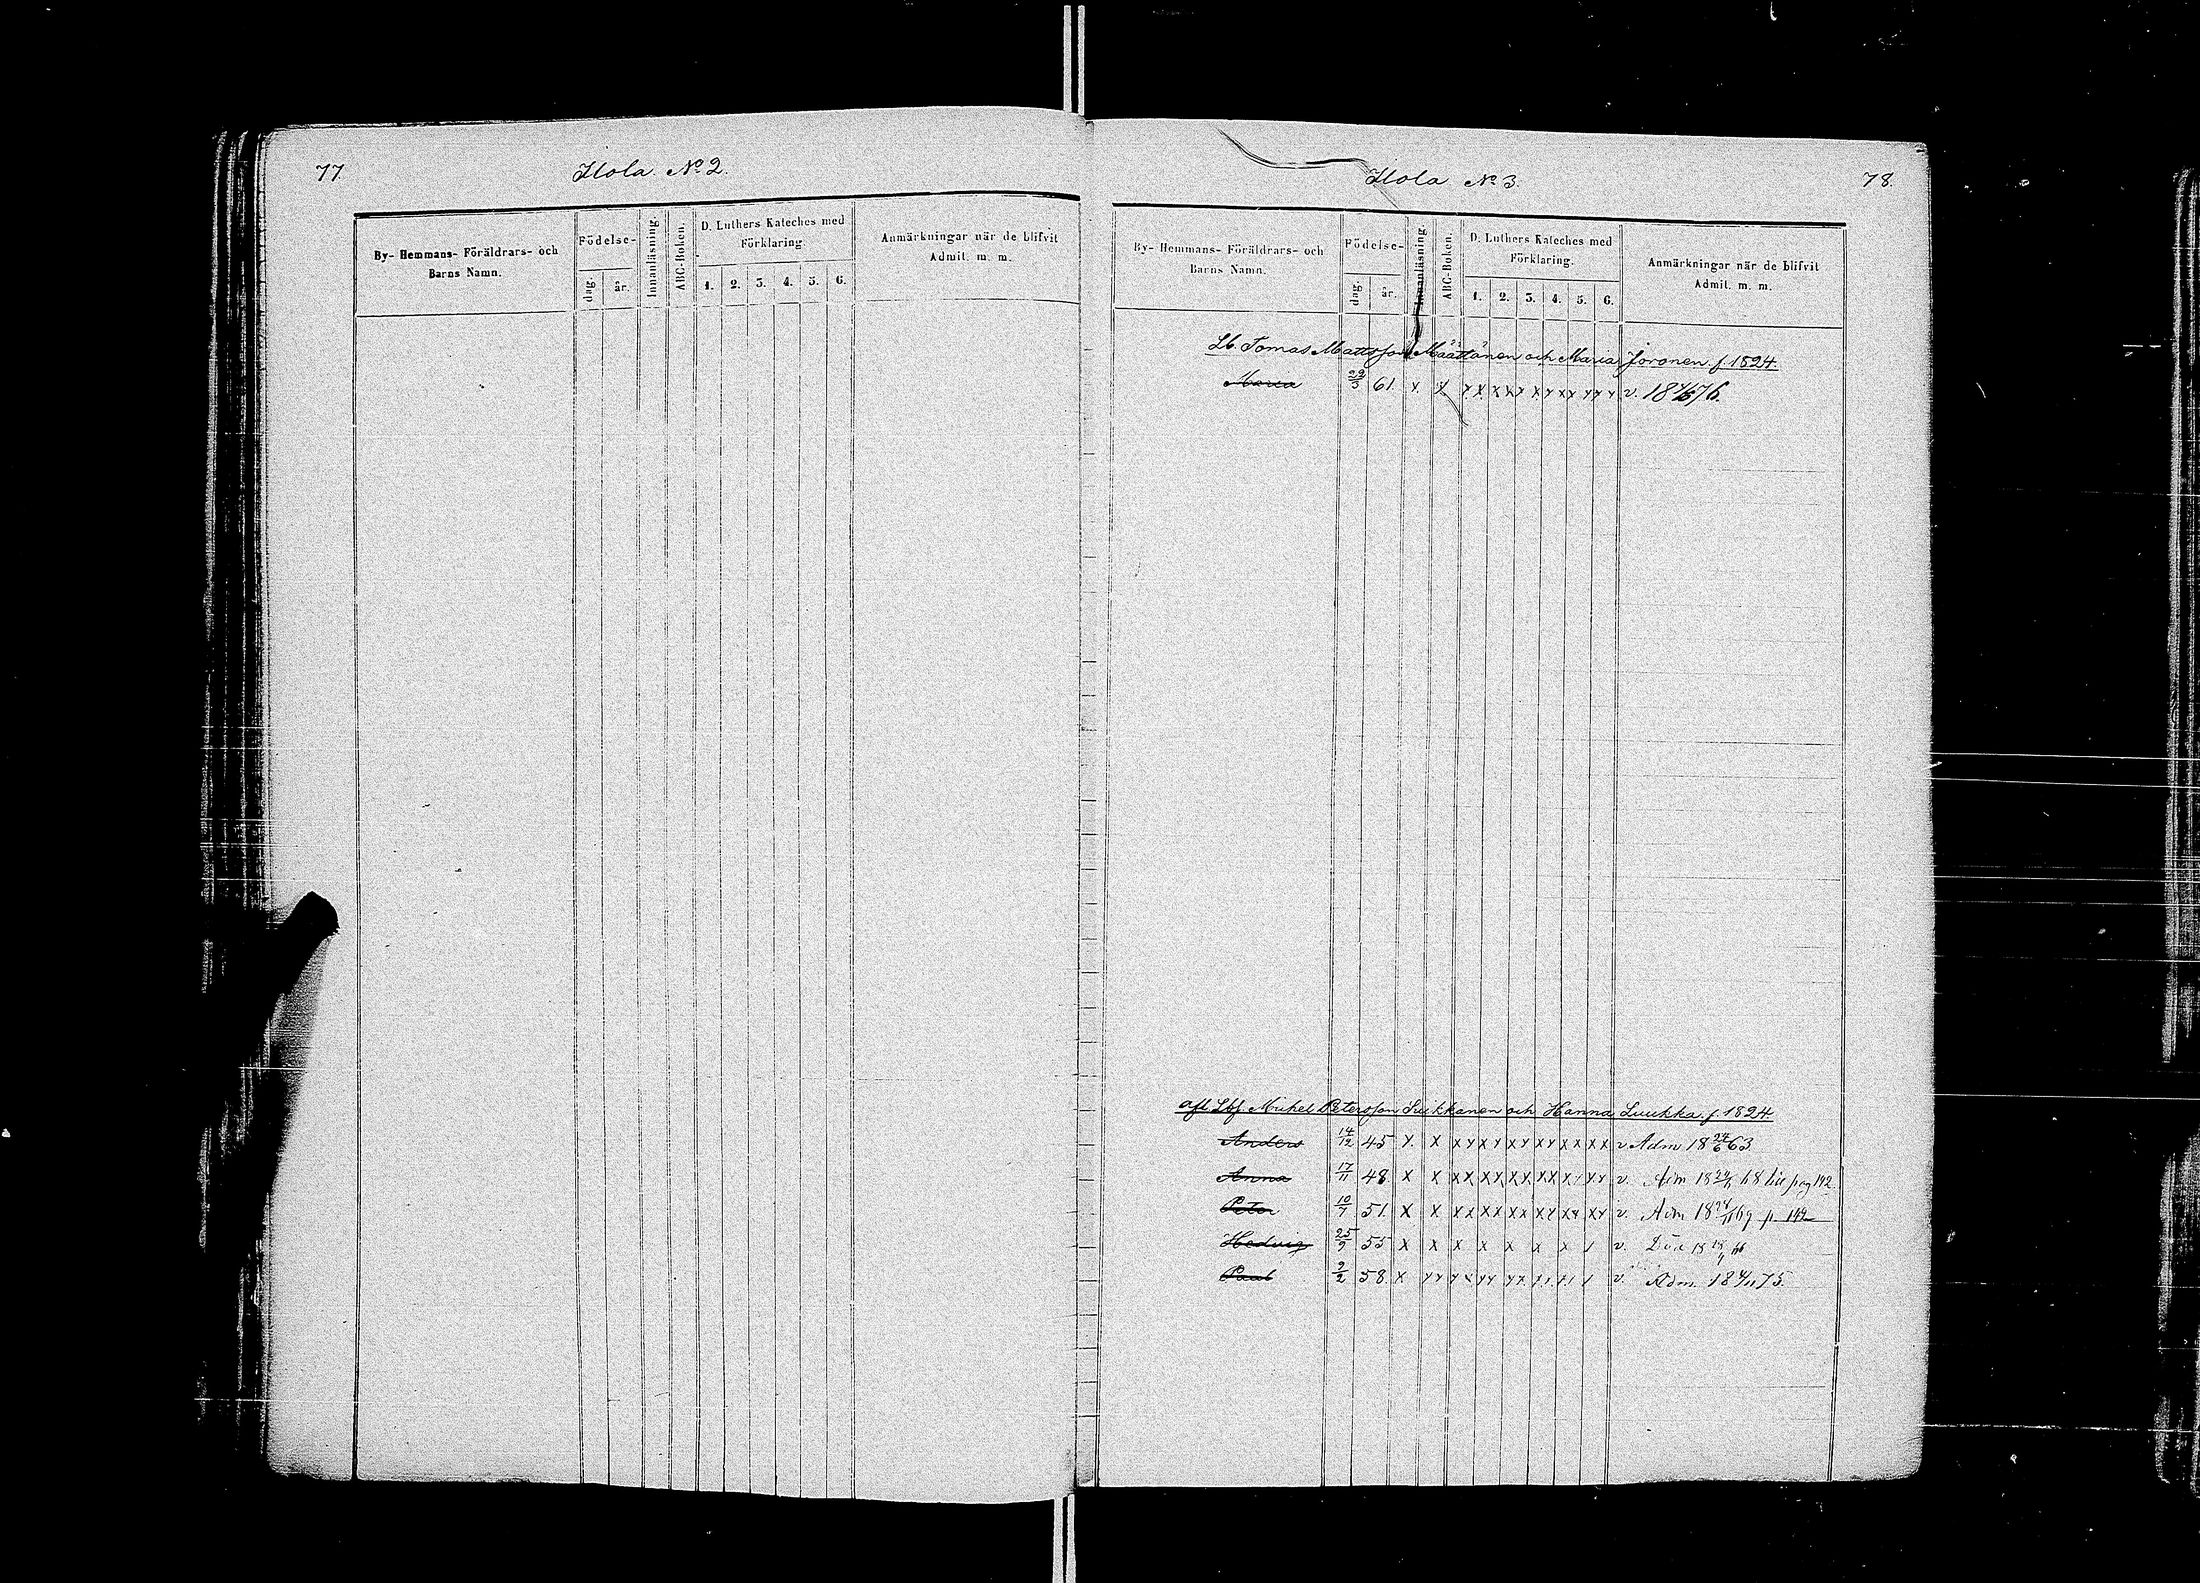 77.
Ilola. No 2.
By- Hemmans- Föräldrars- och Barns Namn.
Födelse-
dag.
år.
Innanläsning.
ABC-Boken.
D. Luthers Kateches med Förklaring.
1. 2. 3. 4. 5. 6.
Anmärkningar när de blifvit Admit. m. m.
Ilola No 3.
78.
By- Hemmans- Föräldrars- och Barns Namn.
Födelse-
dag.
år.
Innanläsning.
ABC-Boken.
D. Luthers Kateches med Förklaring.
1. 2. 3. 4. 5. 6.
Anmärkningar när de blifvit Admit. m. m.
Lb. Tomas Mattsson Määttänen och Maria Joronen f. 1824.
Maria 29/3 61. x x x x x x x x x x x x x x v.
afl. Lbf. Michel Petersson Suikkanen och Hanna Luukka f. 1824.
Anders 14/12 45 x. x x x x x x x x x x x x x v Adm 18 24/6 63
Anna 17/11 48 x x x x x x x x x x x x x x v. Adm 68 pag 142
Peter 10/7 51. x x x x x x x x x x x x x x v. Adm 69 p. 142
Hedvig 25/9 55 x x x x x x x / v. Död 66
Paul 9/2 58. x x x x x x x x x / x / x / / v. Adm. 75.